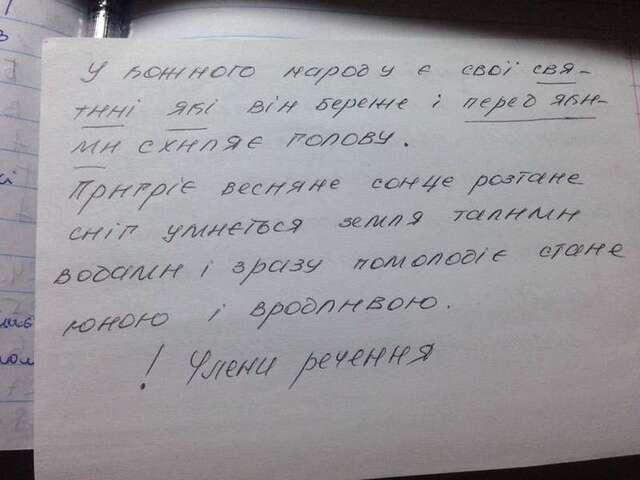 У кожного народу є свої свя-
тині які він береже і перед яки-
ми схиляє голову.
Пригріє весняне сонце розтане
сніг умиється земля талими
водами і зразу помолодіє стане
юною і вродливою.
! Члени речення